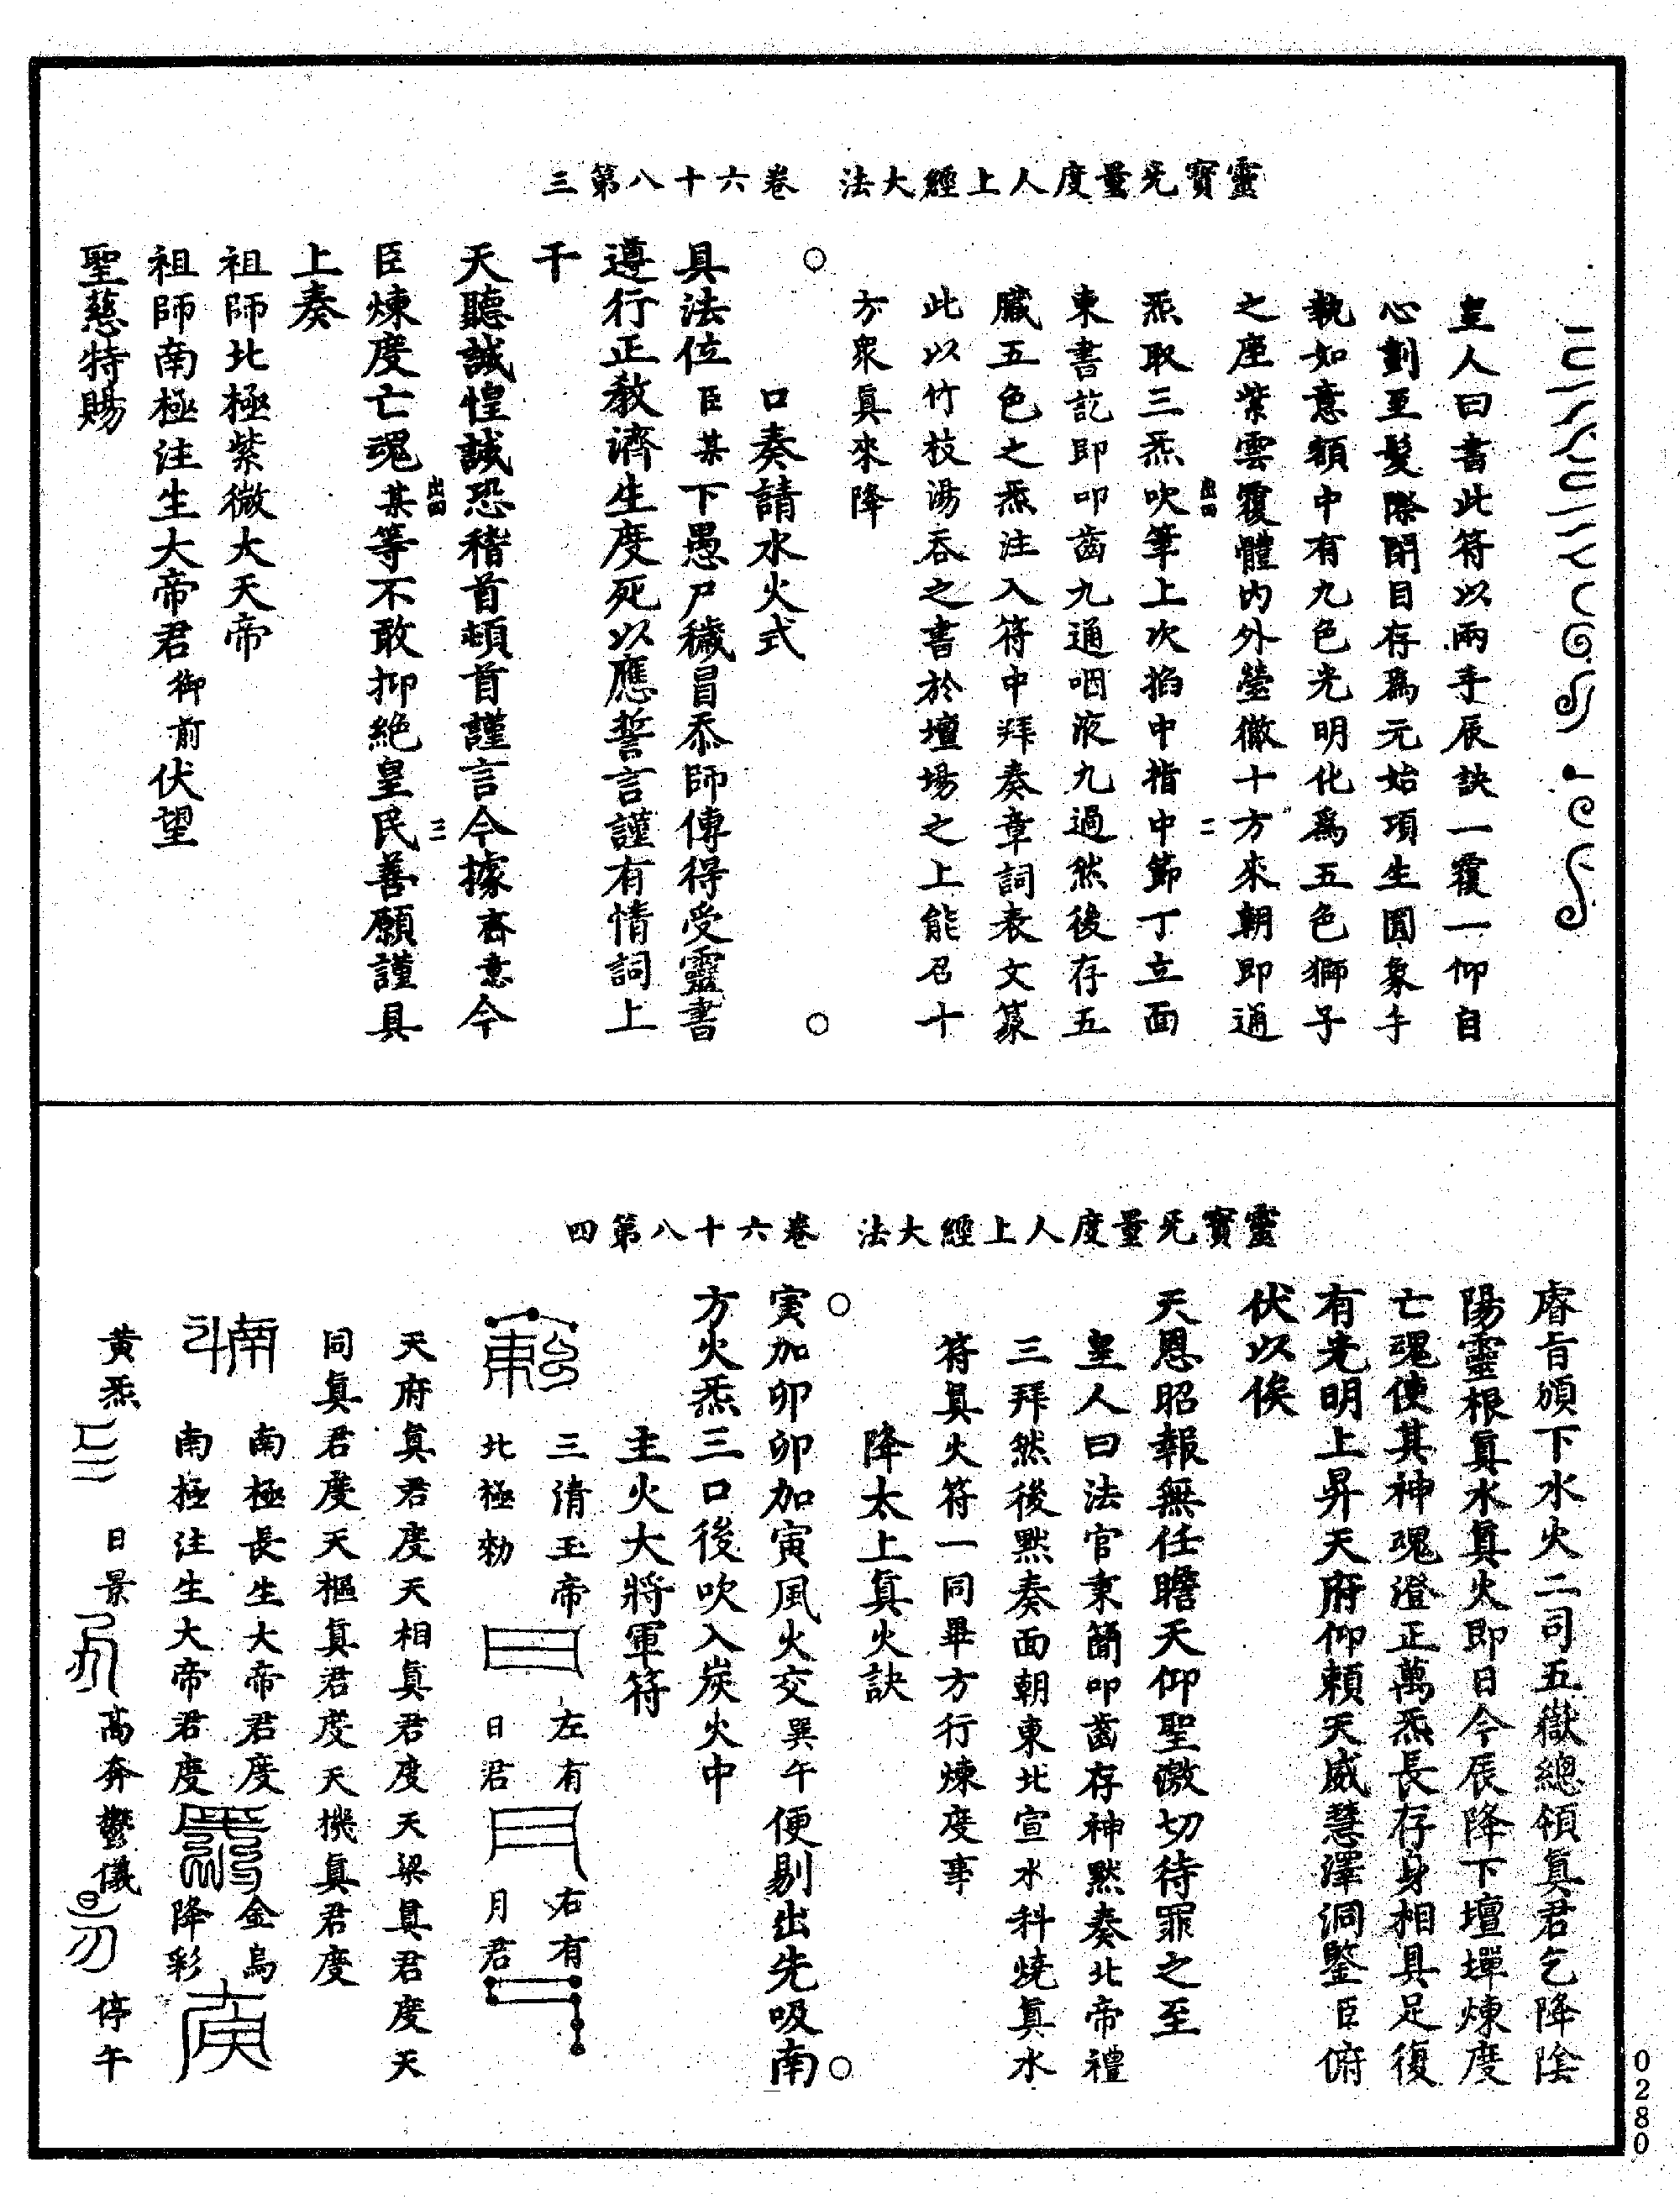 靈寶无量度人上經大法　卷六十八第三
皇人曰書此符以兩手辰訣一覆一仰自
心劃至髮際閉目存爲元始項生圓象手
執如意額中有九色光明化爲五色獅子
之座紫雲覆體內外瑩徹十方來朝即通
出四　二
炁取三炁吹筆上次掐中指中節丁立面
東書訖即叩齒九通咽液九過然後存五
臟五色之炁注入符中拜奏章詞表文篆
此以竹枝湯吞之書於壇場之上能召十
方衆真來降
○　○
口奏請水火式
具法位臣某下愚尸穢冒忝師傳得受靈書
遵行正教濟生度死以應誓言謹有情詞上
干
天聽誠惶誠恐稽首頓首謹言今據齋意今
出四　三
臣煉度亡魂某等不敢抑絕皇民善願謹具
上奏
祖師北極紫微大天帝
祖師南極注生大帝君御前伏望
聖慈特賜
靈寶无量度人上經大法　卷六十八第四
睿旨頒下水火二司五嶽總領真君乞降陰
陽靈根真水真火即日今辰降下壇墠煉度
亡魂使其神魂澄正萬炁長存身相具足復
有光明上昇天府仰賴天威慧澤洞鑒臣俯
伏以俟
天恩昭報無任瞻天仰聖激切待罪之至
皇人曰法官秉簡叩齒存神默奏北帝禮
三拜然後默奏面朝東北宣水科燒真水
符真火符一同畢方行煉度事
降太上真火訣
○　○
寅加卯卯加寅風火交巽午便剔出先吸南
方火炁三口後吹入炭火中
主火大將軍符
三清玉帝　左有　右有
北極勑　日君　月君
天府真君度天相真君度天梁真君度天
同真君度天樞真君度天機真君度
南極長生大帝君度　金烏
南極注生大帝君度　降彩
黃炁　日景　高奔鬱儀　停午
0280